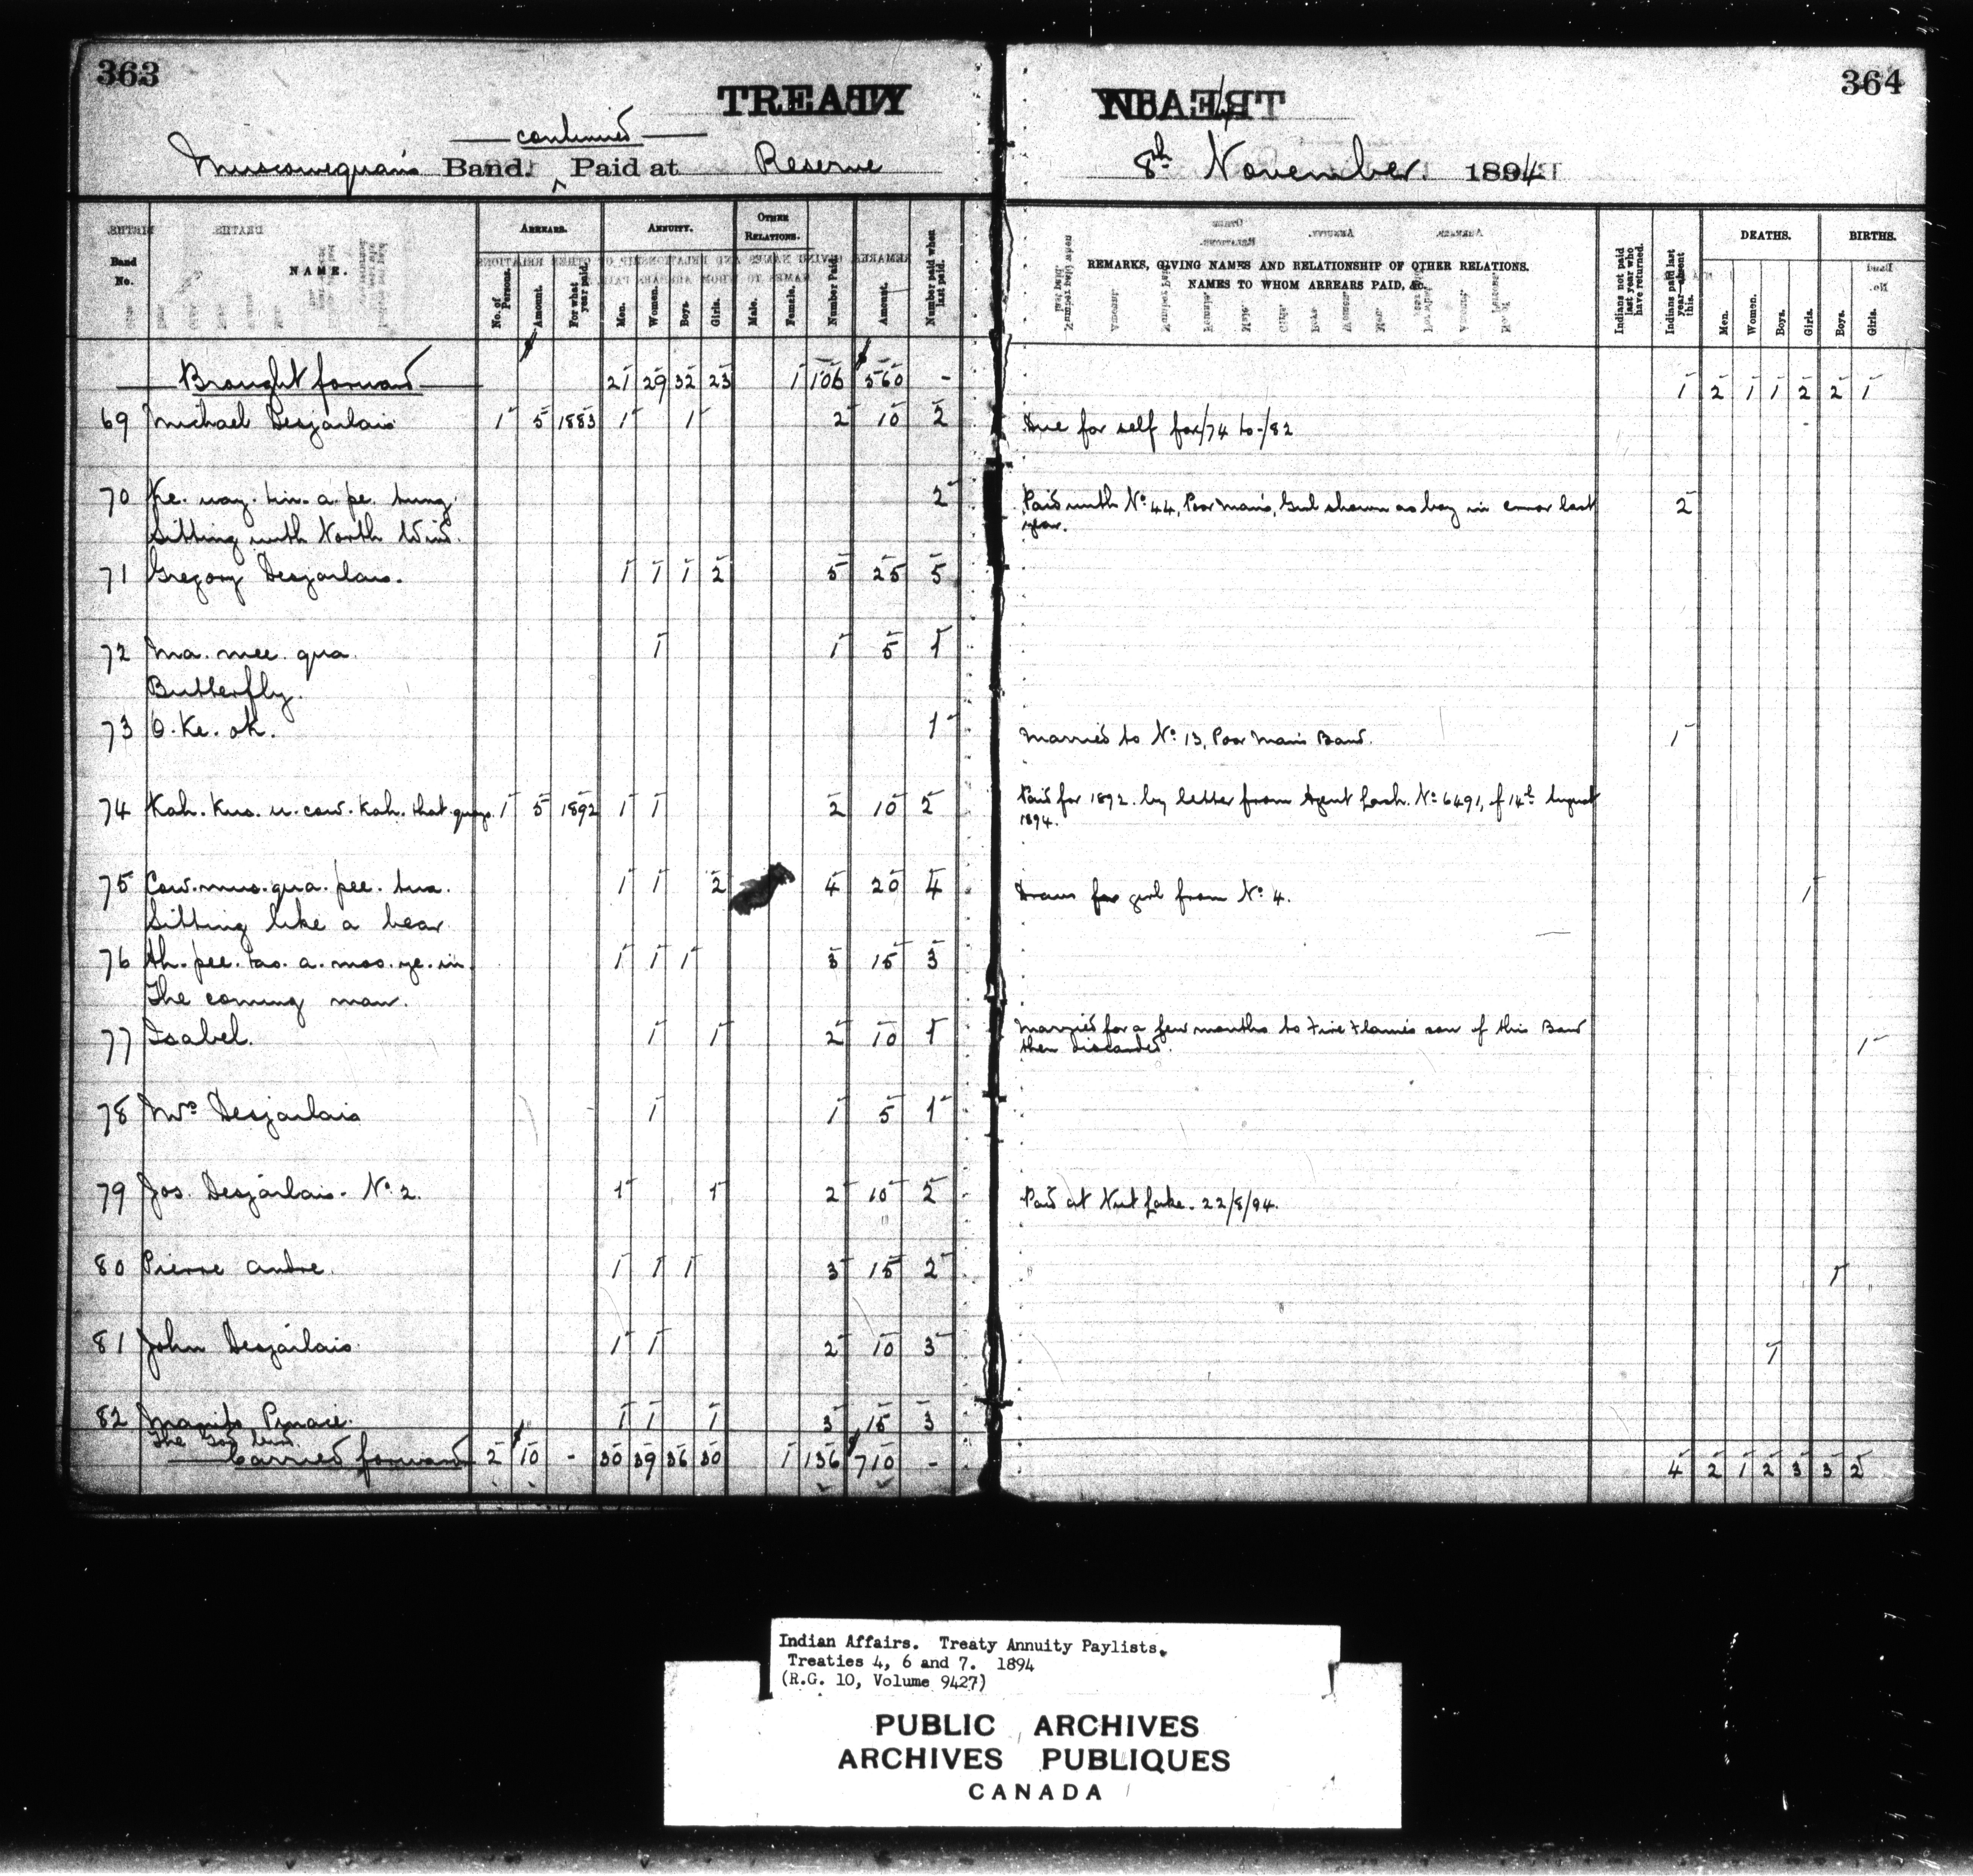 363
TREATY
continued
Muscowequan's Band. Paid at Reserve
Band No.
NAME.
ARREARS.
No. of Persons.
Amount.
For what year paid.
ANNUITY.
Men.
Women.
Boys.
Girls.
OTHER RELATIONS.
Male.
Female.
Number Paid.
Amount.
Number paid when last paid.
Brought forward 21 29 32 23 1 106 560 -
69 Michael Desjarlais 1 5 1883 1 1 2 10 2
70 Ke. way. tin. a. pe. tung. 2
Sitting with North Wind.
71 Gregory Desjarlais. 1 1 1 2 5 25 5
72 Ma. mee. qua. 1 1 5 1
Butterfly.
73 O. Ke. ok. 1
74 Kah. Kus. u. cow. Kah. that. quays. 1 5 1892 1 1 2 10 2
75 Cow. mus. qua. pee. tua. 1 1 2 4 20 4
Sitting like a bear.
76 Ah. pee. tao. a. mos. ye. in. 1 1 1 3 15 3
The coming man.
77 Isabel. 1 1 2 10 1
78 Mrs Desjarlais 1 1 5 1
79 Jos. Desjarlais. No 2. 1 1 2 10 2
80 Pierre Andre. 1 1 1 3 15 2
81 John Desjarlais. 1 1 2 10 3
82 Manito Pinaie. 1 1 1 3 15 3
The God bird.
Carried forward 2 10 - 30 39 36 30 1 136 710 -
364
TREATY
8th November 1894
REMARKS, GIVING NAMES AND RELATIONSHIP OF OTHER RELATIONS.
NAMES TO WHOM ARREARS PAID, &c.
Indians not paid last year who have returned.
Indians paid last year absent this.
DEATHS.
Men.
Women.
Boys.
Girls.
BIRTHS.
Boys.
Girls.
1 2 1 1 2 2 1
Due for self for /74 to /82
Paid with No 44, Poor Man's, Girl shown as boy in error last 2
year.
Married to No 13, Poor Man's Band. 1
Paid for 1892. by letter from Agent Lash. No 6491, of 14th August
1894.
Draws for girl from No 4. 1
Married for a few months to Fire Flame's son of this Band
then discarded. 1
Paid at Nut Lake. 22/8/94.
1
1
4 2 1 2 3 3 2
Indian Affairs. Treaty Annuity Paylists.
Treaties 4, 6 and 7. 1894
(R.G. 10, Volume 9427)
PUBLIC ARCHIVES
ARCHIVES PUBLIQUES
CANADA